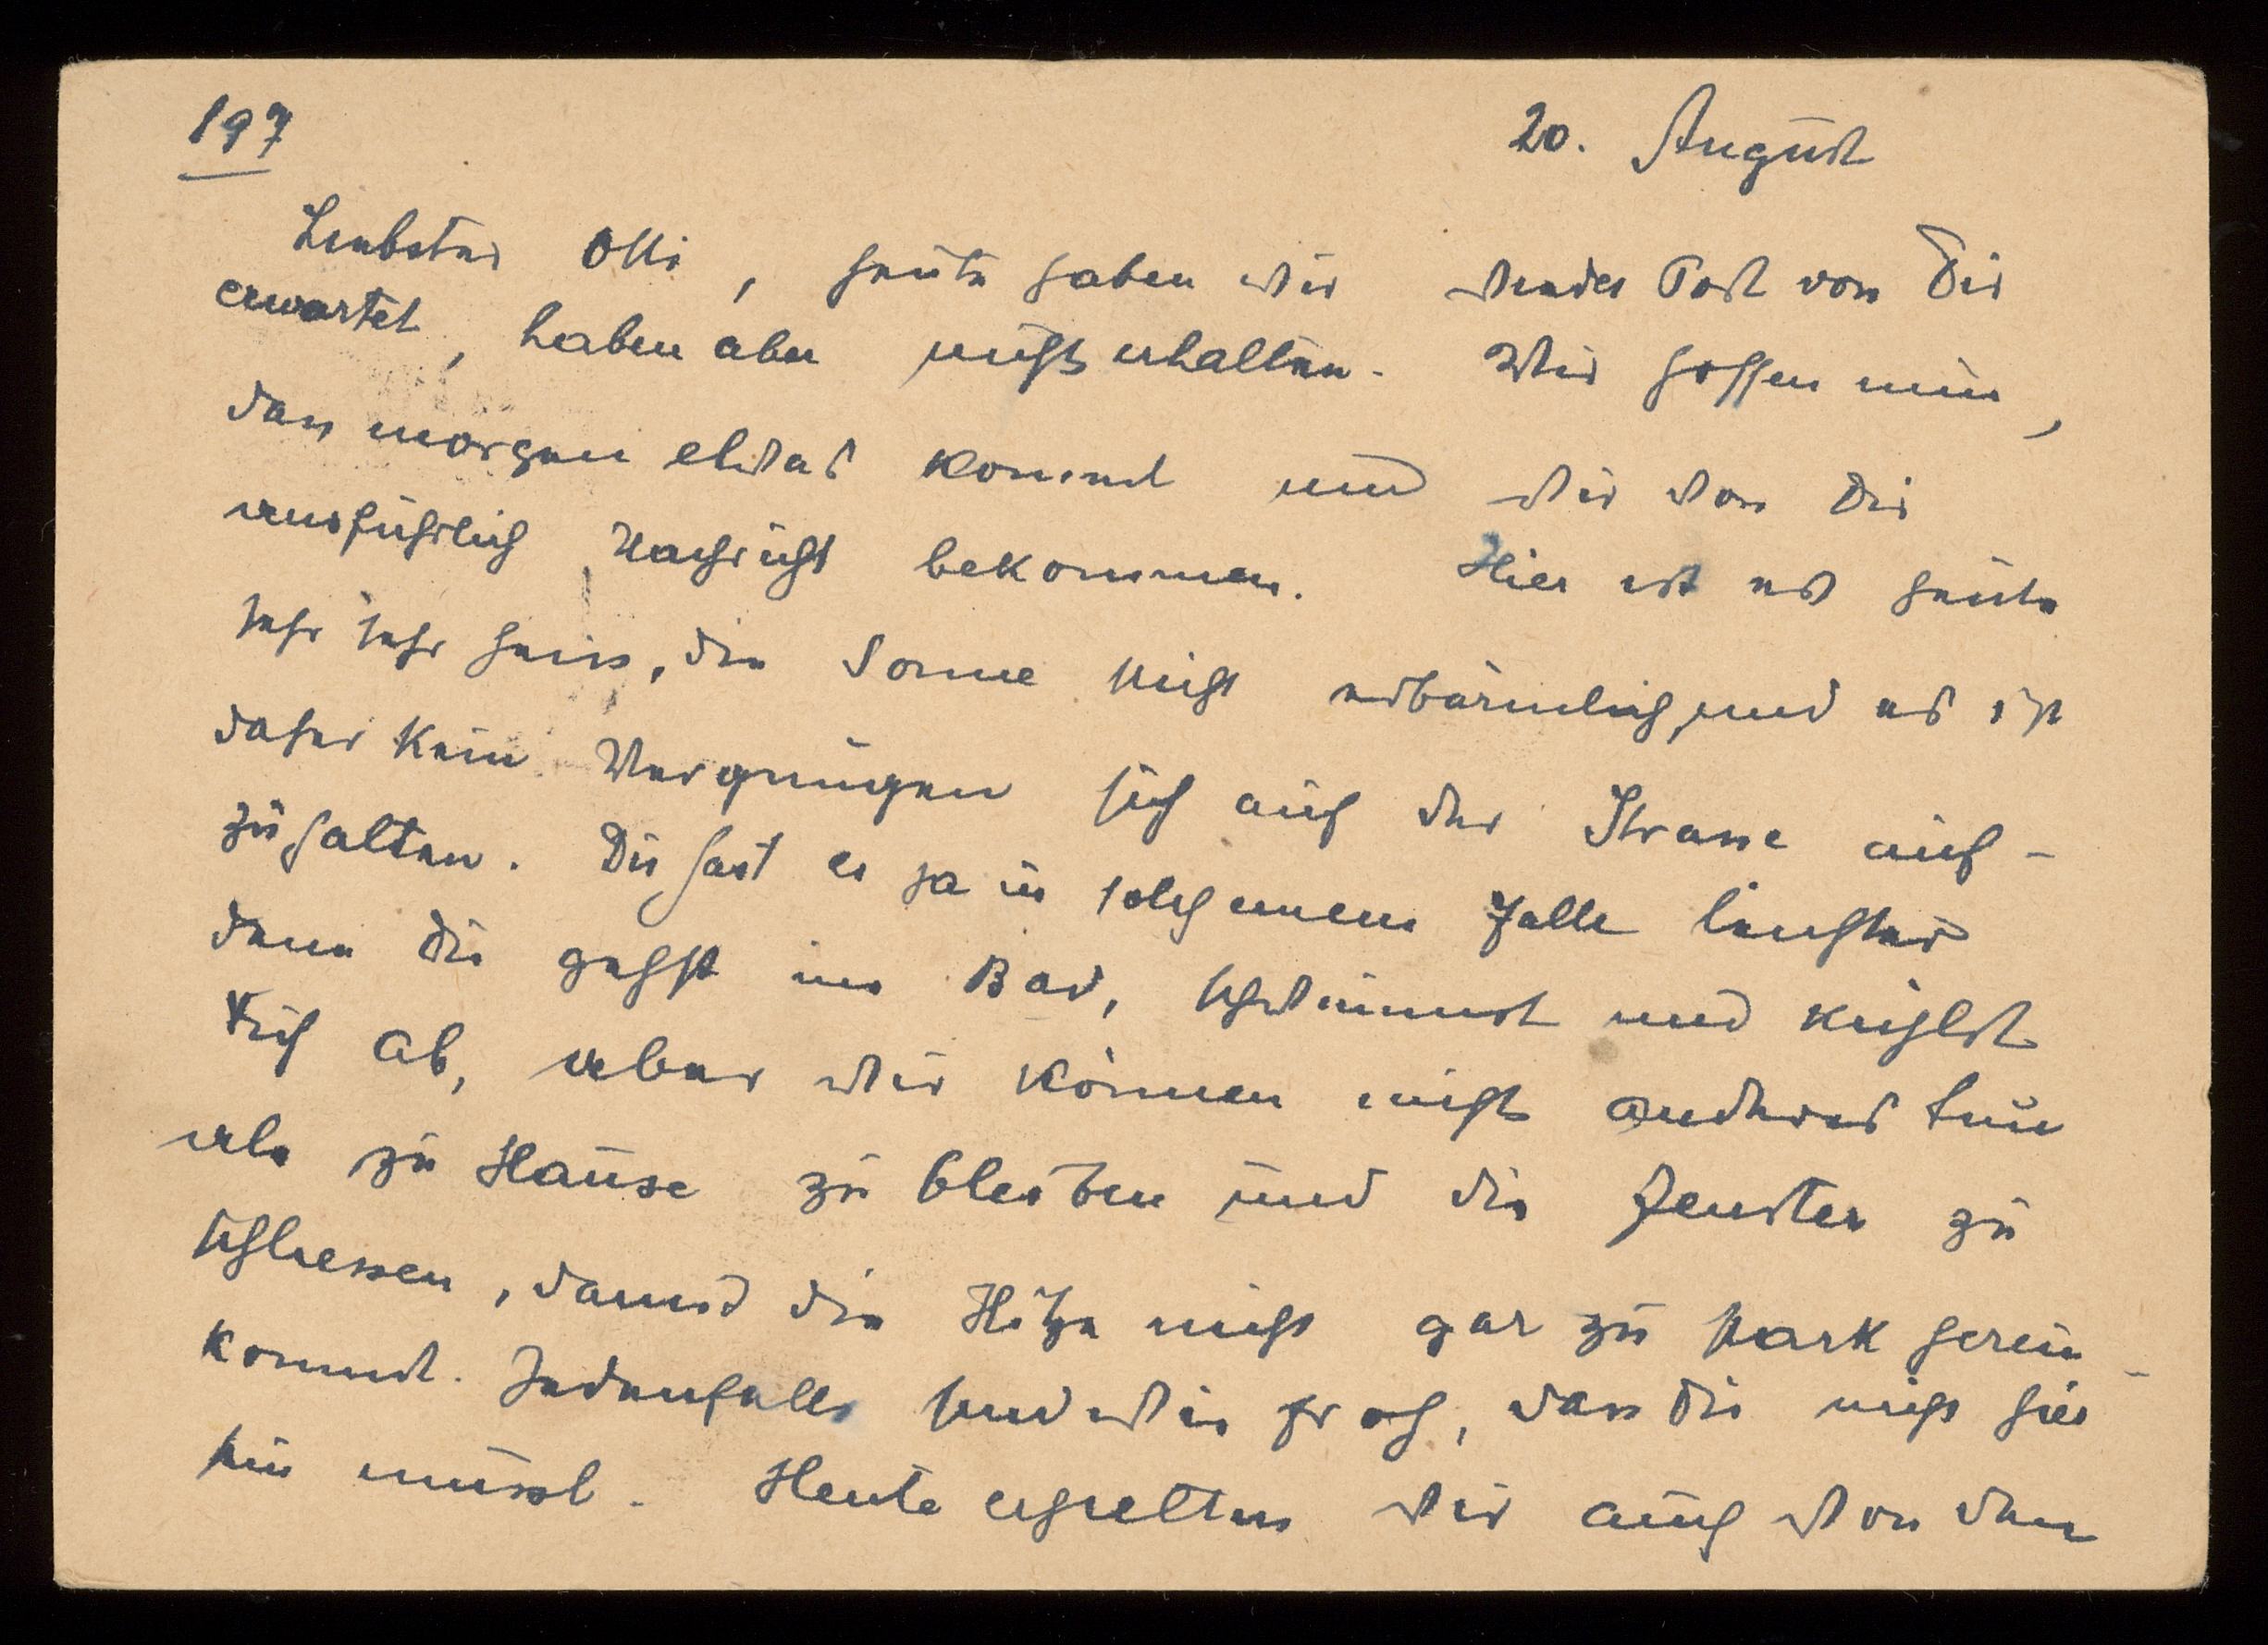 197
20. August
Liebster Otti, heute haben wir wieder Post von Dir
erwartet, haben aber nichts erhalten. Wir hoffen nun,
dass morgen etwas kommt und wir von Dir
ausführlich Nachricht bekommen. Hier ist es heute
sehr sehr heiss, die Sonne sticht erbärmlich, und es ist
daher kein Vergnügen sich auf der Strasse auf-
zuhalten. Du hast es ja in solch einem Falle leichter
denn Du gehst ins Bad, schwimmst und kühlst
Dich ab, aber wir können nichts anderes tun
als zu Hause zu bleiben und die Fenster zu
schliessen, damit die Hitze nicht gar zu stark herein-
kommt. Jedenfalls sind wir froh, dass Du nicht hier
sein musst. Heute erhielten wir auch von den